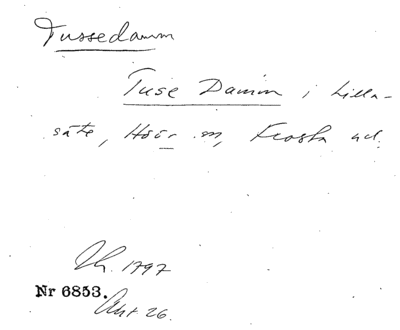 Tussedamm
Tuse Damm i Lilla-
säte, Höör sn, Frosta hd.
1797
Nr 6853.
Akt 26.